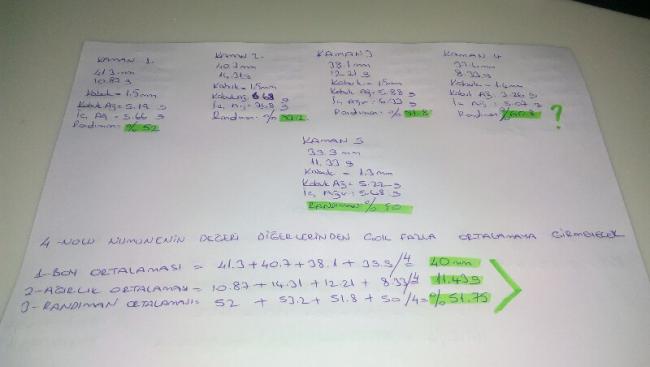 KAMAN 1.
41.3 mm
10.87 g
Kabuk = 1.5mm
Kabuk Ağ = 5.19 g
İç Ağ = 5.66 g
Randıman = % 52
KAMAN 2.
40.7 mm
14.31 g
Kabuk = 1.5mm
Kabuk Ağ. 6.68 g
İç Ağ = g
Randıman = % 53.2
KAMAN 3
38.1 mm
12.21 g
Kabuk = 1.5mm
Kabuk Ağ = 5.88 g
İç Ağ = 6.33 g
Randıman = % 51.8
KAMAN 4
mm
8.33 g
Kabuk = mm
Kabuk Ağ. 3.26 g
İç Ağ = 5.07 g
Randıman % ?
KAMAN 5
mm
11.33 g
Kabuk = 1.3mm
Kabuk Ağ = g
İç Ağ = 5.68 g
RANDIMAN % 50
4-NOLU NUMUNENİN DEĞERİ DİĞERLERİNDEN ÇOK FAZLA ORTALAMAYA GİRMEYECEK
1-BOY ORTALAMASI = 41.3 + 40.7 + 38.1 + /4 = 40 mm
2-AĞIRLIK ORTALAMASI = 10.87 + 14.31 + 12.21 + 8.33/4 11.43 g
3-RANDIMAN ORTALAMASI = 52 + 53.2 + 51.8 + 50 /4 = % 51.75